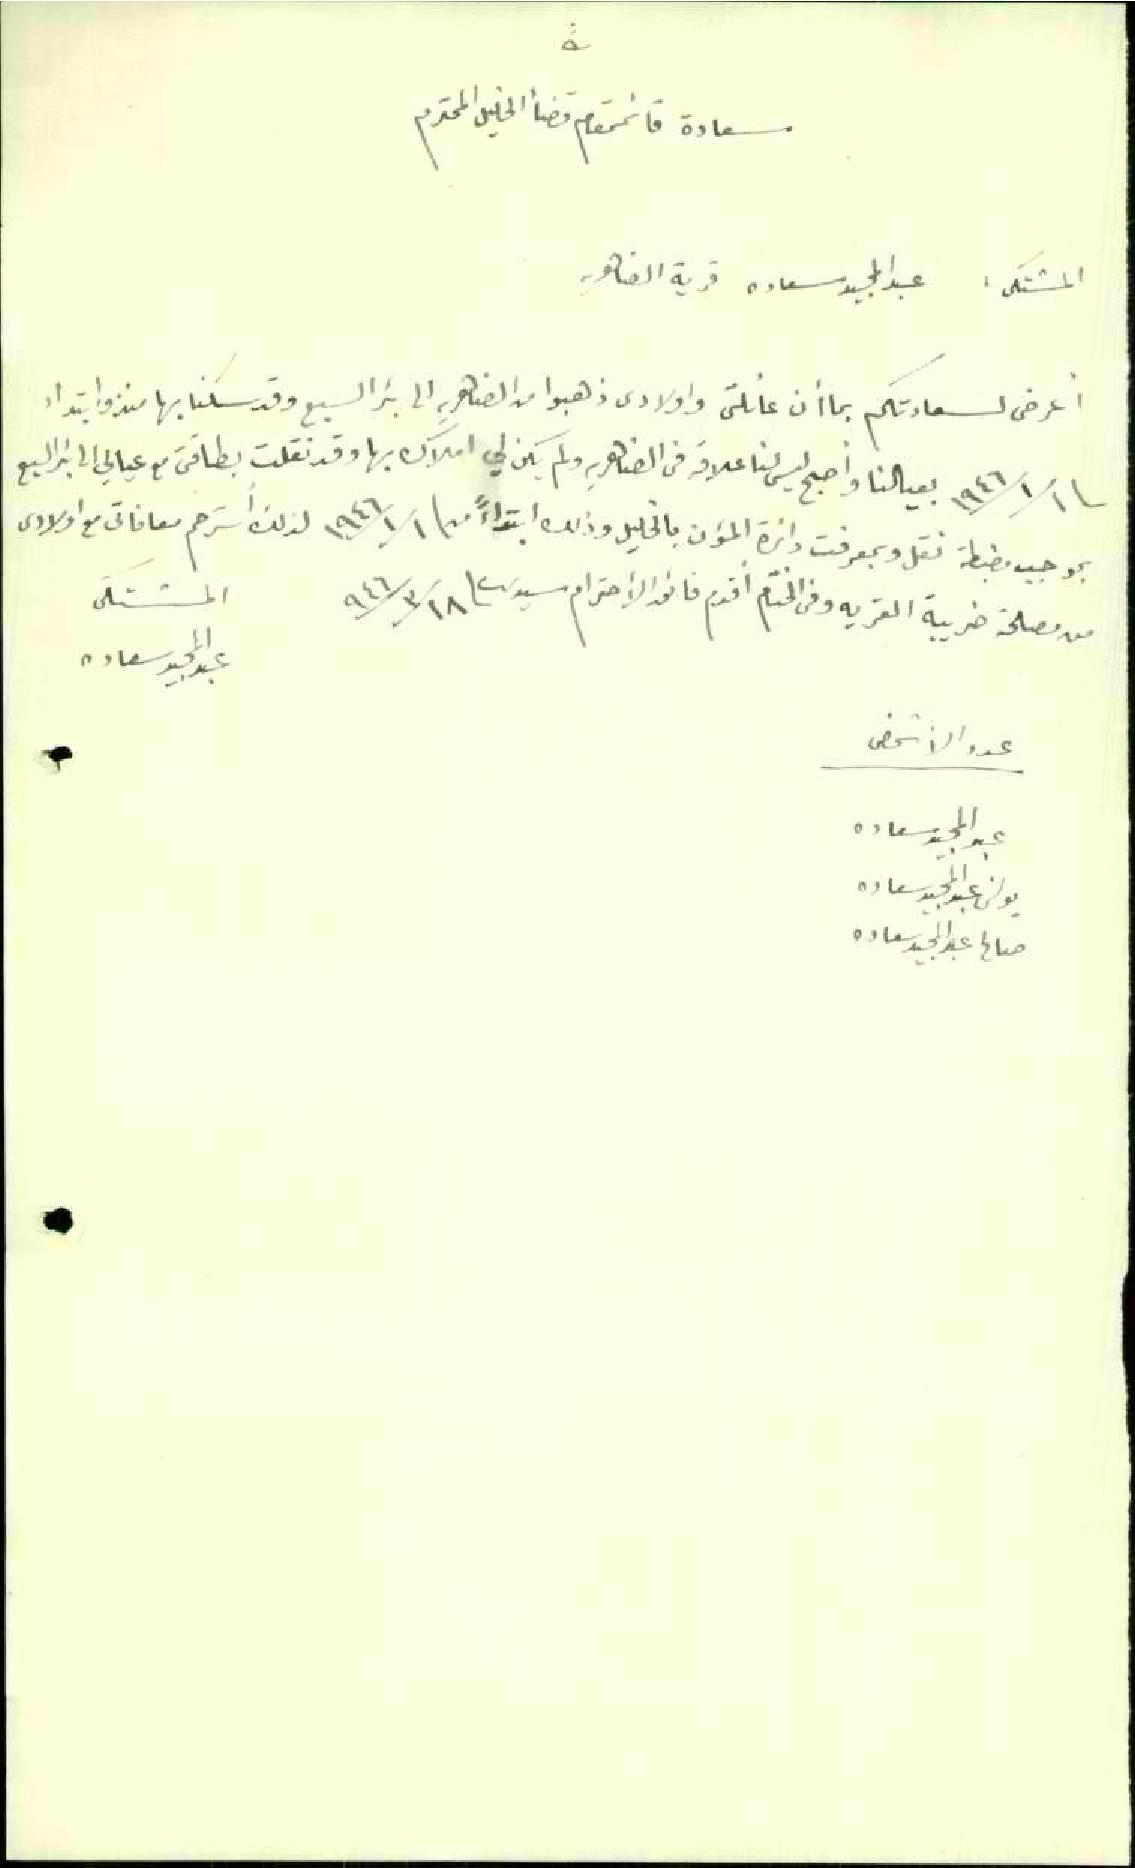 سعادة قائمقام قضاء الخليل المحترم
المشتكى: عبدالمجيد سعاده قرية الضاهريه
أعرض لسعادتكم بما أن عائلتى واولادى ذهبوا من الضاهريه الى بئر السبع وقد سكنا بها منذ وابتداء
من ١/١/١٩٤٦ بعيالنا وأصبح ليس لنا علاقة فى الضاهريه ولم يكن لي املاك بها وقد نقلت بطاقتى مع عيالي الى بئر السبع
بموجب مضبطة نقل وبمعرفت دائرة المؤن بالخليل وذلك ابتداءً من ١/١/١٩٤٦ لذلك أسترحم معافاتى مع اولادى
من مصلحة ضريبة القريه وفى الختام أقدم فائق الأحترام سيدى ١٨/٣/٩٤٦
المشتكى
عبدالمجيد سعاده
عدد الأشخص
عبدالمجيد سعاده
يونس عبدالمجيد سعاده
صالح عبدالمجيد سعاده